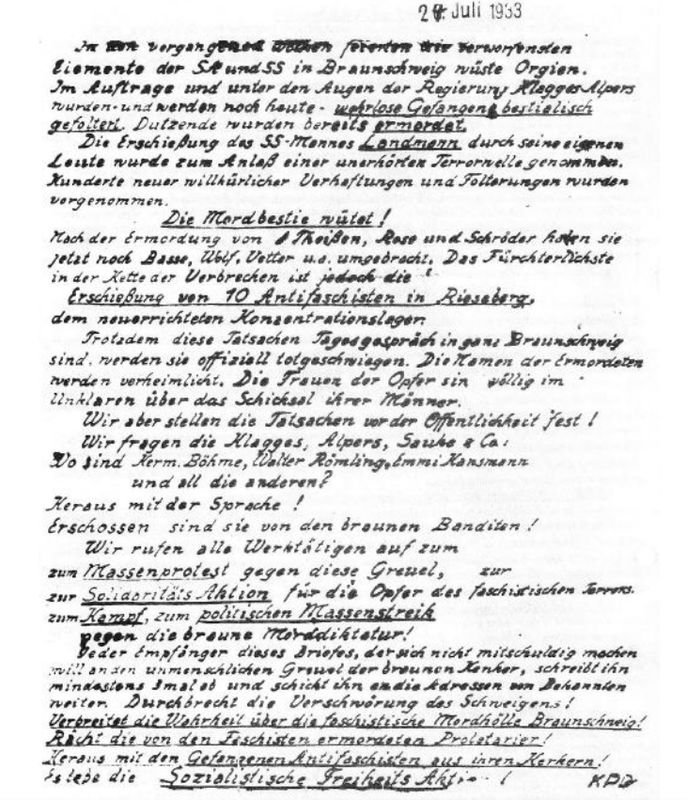 Juli 1933
In den vergangenen Wochen feierten die verworfensten
Elemente der SA und SS in Braunschweig wüste Orgien.
Im Auftrage und unter den Augen der Regierung Klagges Alpers
wurden - und werden noch heute - wehrlose Gefangene bestialisch
gefoltert. Dutzende wurden bereits ermordet.
Die Erschießung des SS-Mannes Landmann durch seine eigenen
Leute wurde zum Anlaß einer unerhörten Terrorwelle genommen.
Hunderte neuer willkürlicher Verhaftungen und Folterungen wurden
vorgenommen.
Die Mordbestie wütet!
Nach der Ermordung von Theißen, Rose und Schröder haben sie
jetzt noch Basse, Wolf, Vetter u.a. umgebracht. Das Fürchterlichste
in der Kette der Verbrechen ist jedoch die
Erschießung von 10 Antifaschisten in Rieseberg,
dem neuerrichteten Konzentrationslager.
Trotzdem diese Tatsachen Tagesgespräch in ganz Braunschweig
sind, werden sie offiziell totgeschwiegen. Die Namen der Ermordeten
werden verheimlicht. Die Frauen der Opfer sin völlig im
Unklaren über das Schicksal ihrer Männer.
Wir aber stellen die Tatsachen vor der Öffentlichkeit fest!
Wir fragen die Klagges, Alpers, Sauke & Co:
Wo sind Herm. Böhme, Walter Römling, Emmi Hansmann
und all die anderen?
Heraus mit der Sprache!
Erschossen sind sie von den braunen Banditen!
Wir rufen alle Werktätigen auf zum
zum Massenprotest gegen diese Greuel, zur
zur Solidaritäts Aktion für die Opfer des faschistischen Terrors.
zum Kampf, zum politischen Massenstreik
gegen die braune Morddiktatur!
Jeder Empfänger dieses Briefes, der sich nicht mitschuldig machen
will an den unmenschlichen Greuel der braunen Henker, schreibt ihn
mindestens 3mal ab und schickt ihn an die Adressen von Bekannten
weiter. Durchbrecht die Verschwörung des Schweigens!
Verbreitet die Wahrheit über die faschistische Mordhölle Braunschweig!
Rächt die von den Faschisten ermordeten Proletarier!
Heraus mit den Gefangenen Antifaschisten aus ihren Kerkern!
Es lebe die Sozialistische Freiheits Aktion! KPD